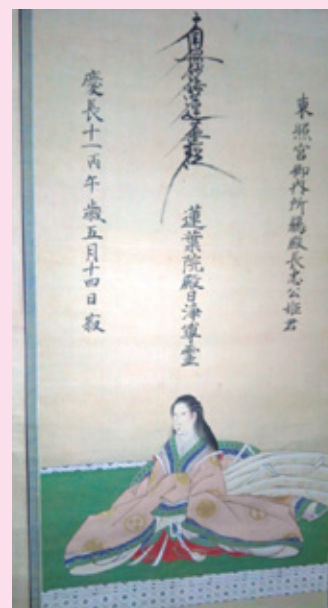 東照宮御内所鵜殿長忠公姫君
南無妙法蓮華経
蓮葉院殿日淨尊霊
慶長十一丙午歳五月十四日寂